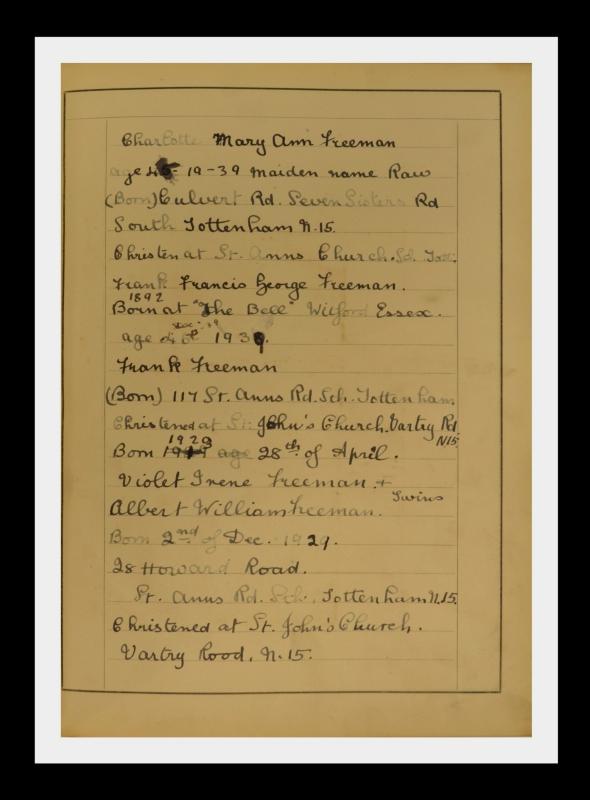 Charlotte Mary Ann Freeman
age 45 19-39 maiden name Raw
(Born) Culvert Rd. Seven Sisters Rd
South Tottenham N.15.
Christen at St. Anns Church. Sth. Tott.
Frank Francis George Freeman.
1892
Born at "The Bell" Witford Essex.
age 1939.
Frank Freeman
(Born) 117 St. Anns Rd. Sth. Tottenham
Christened at St. John's Church. Vartry Rd.
N15
1923
Born age 28th of April.
Violet Irene Freeman +
Twins
Albert William Freeman.
Born 2nd of Dec. 1929.
28 Howard Road.
St. Anns Rd. Sth. Tottenham N.15.
Christened at St. John's Church.
Vartry Rood. N.15.